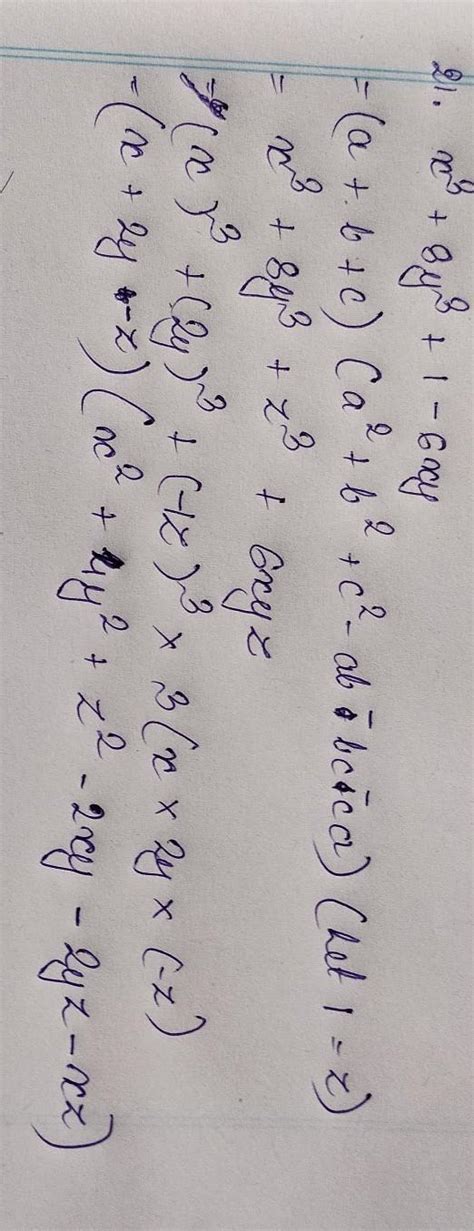 21. x³ + 8y³ + 1 - 6xy
= (a + b + c) (a² + b² + c² - ab - bc - ca) (Let 1 = z)
= x³ + 8y³ + z³ + 6xyz
= (x)³ + (2y)³ + (-1z)³ × 3(x × 2y × (-z)
= (x + 2y - z) (x² + 4y² + z² - 2xy - 2yz - xz)